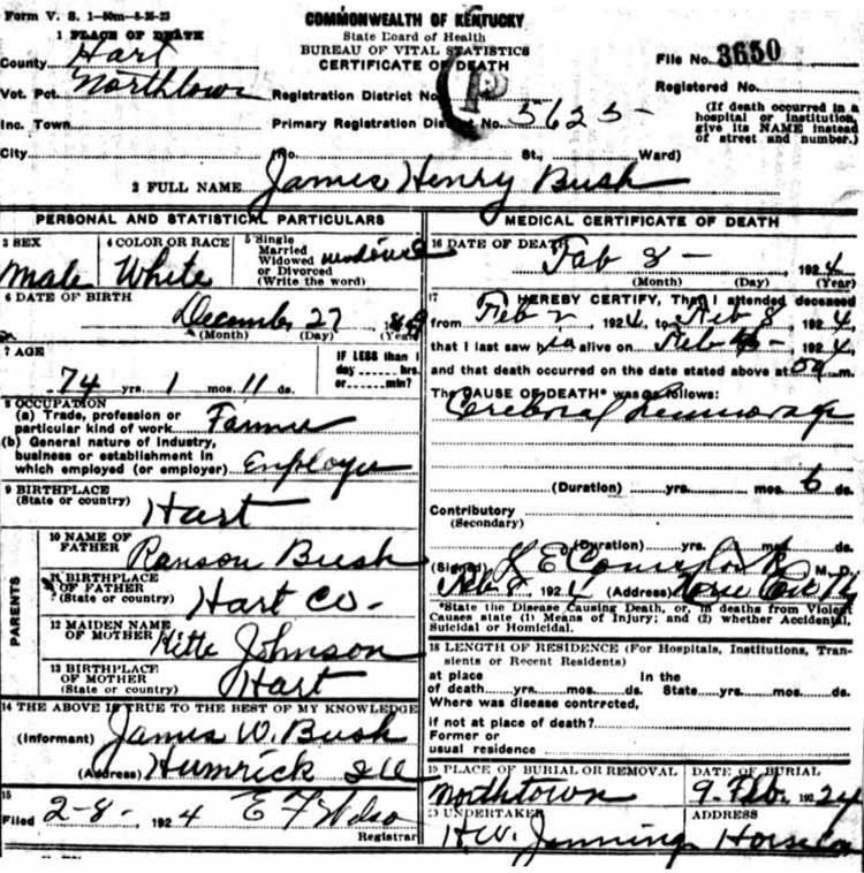 Form V. S. 1-50m-8-26-23
COMMONWEALTH OF KENTUCKY
State Board of Health
BUREAU OF VITAL STATISTICS
CERTIFICATE OF DEATH
1 PLACE OF DEATH
County Hart
Vot. Pct. Northtown
Inc. Town
City
File No. 3650
Registered No.
Registration District No.
Primary Registration District No. 5625
(If death occurred in a hospital or institution, give its NAME instead of street and number.)
(No. St., Ward)
2 FULL NAME James Henry Bush
PERSONAL AND STATISTICAL PARTICULARS
3 SEX
Male
4 COLOR OR RACE
White
5 Single
Married
Widowed
or Divorced
(Write the word)
6 DATE OF BIRTH
December 27
(Month) (Day) (Year)
7 AGE
74 yrs. 1 mos. 11 ds.
IF LESS than 1
day hrs.
or min?
8 OCCUPATION
(a) Trade, profession or
particular kind of work Farmer
(b) General nature of industry,
business or establishment in
which employed (or employer) Employer
9 BIRTHPLACE
(State or country) Hart
PARENTS
10 NAME OF
FATHER Ranson Bush
11 BIRTHPLACE
OF FATHER
(State or country) Hart Co.
12 MAIDEN NAME
OF MOTHER Johnson
13 BIRTHPLACE
OF MOTHER
(State or country) Hart
14 THE ABOVE IS TRUE TO THE BEST OF MY KNOWLEDGE
(Informant) James W. Bush
(Address) Humrick Ill
15
Filed 2-8-, 1924 E F
Registrar
MEDICAL CERTIFICATE OF DEATH
16 DATE OF DEATH
Feb 8 - , 1924
(Month) (Day) (Year)
17 I HEREBY CERTIFY, That I attended deceased
from Feb 2, 1924, to Feb 8, 1924,
that I last saw alive on Feb , 1924,
and that death occurred on the date stated above at m.
The CAUSE OF DEATH* was as follows:
Cerebral Hemmorage
(Duration) yrs. mos. 6 ds.
Contributory
(Secondary)
(Duration) yrs. mos. ds.
(Signed) M. D.
Feb 8, 1924 (Address) Horse Cave Ky
*State the Disease Causing Death, or, in deaths from Violent
Causes state (1) Means of Injury; and (2) whether Accidental,
Suicidal or Homicidal.
18 LENGTH OF RESIDENCE (For Hospitals, Institutions, Tran-
sients or Recent Residents)
at place In the
of death yrs. mos. ds. State yrs. mos. ds.
Where was disease contrected,
if not at place of death?
Former or
usual residence
19 PLACE OF BURIAL OR REMOVAL
Northtown
DATE OF BURIAL
9 Feb. 1924
UNDERTAKER
H.W. Jennings
ADDRESS